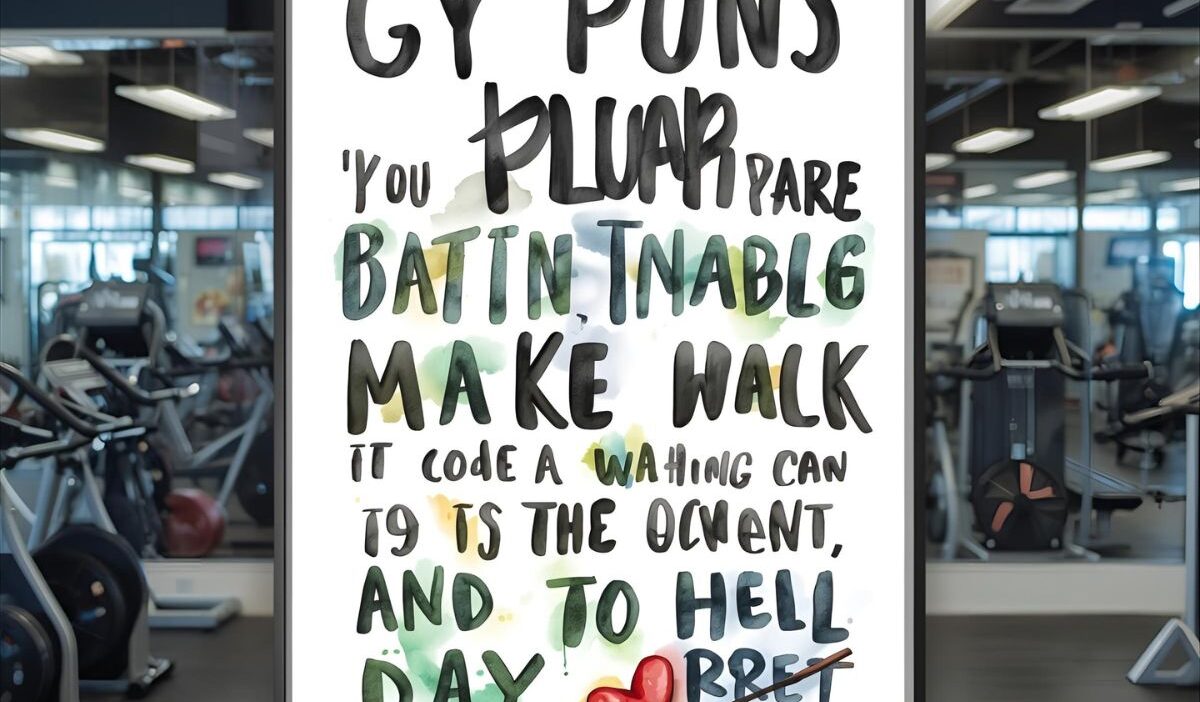 GY PUNS
PLUAR
'YOU PARE
BATIN TNABLG
MAKE WALK
IT CODE A WAHING CAN
T9 TS THE OCVENT,
AND TO HELL
DAY RRET